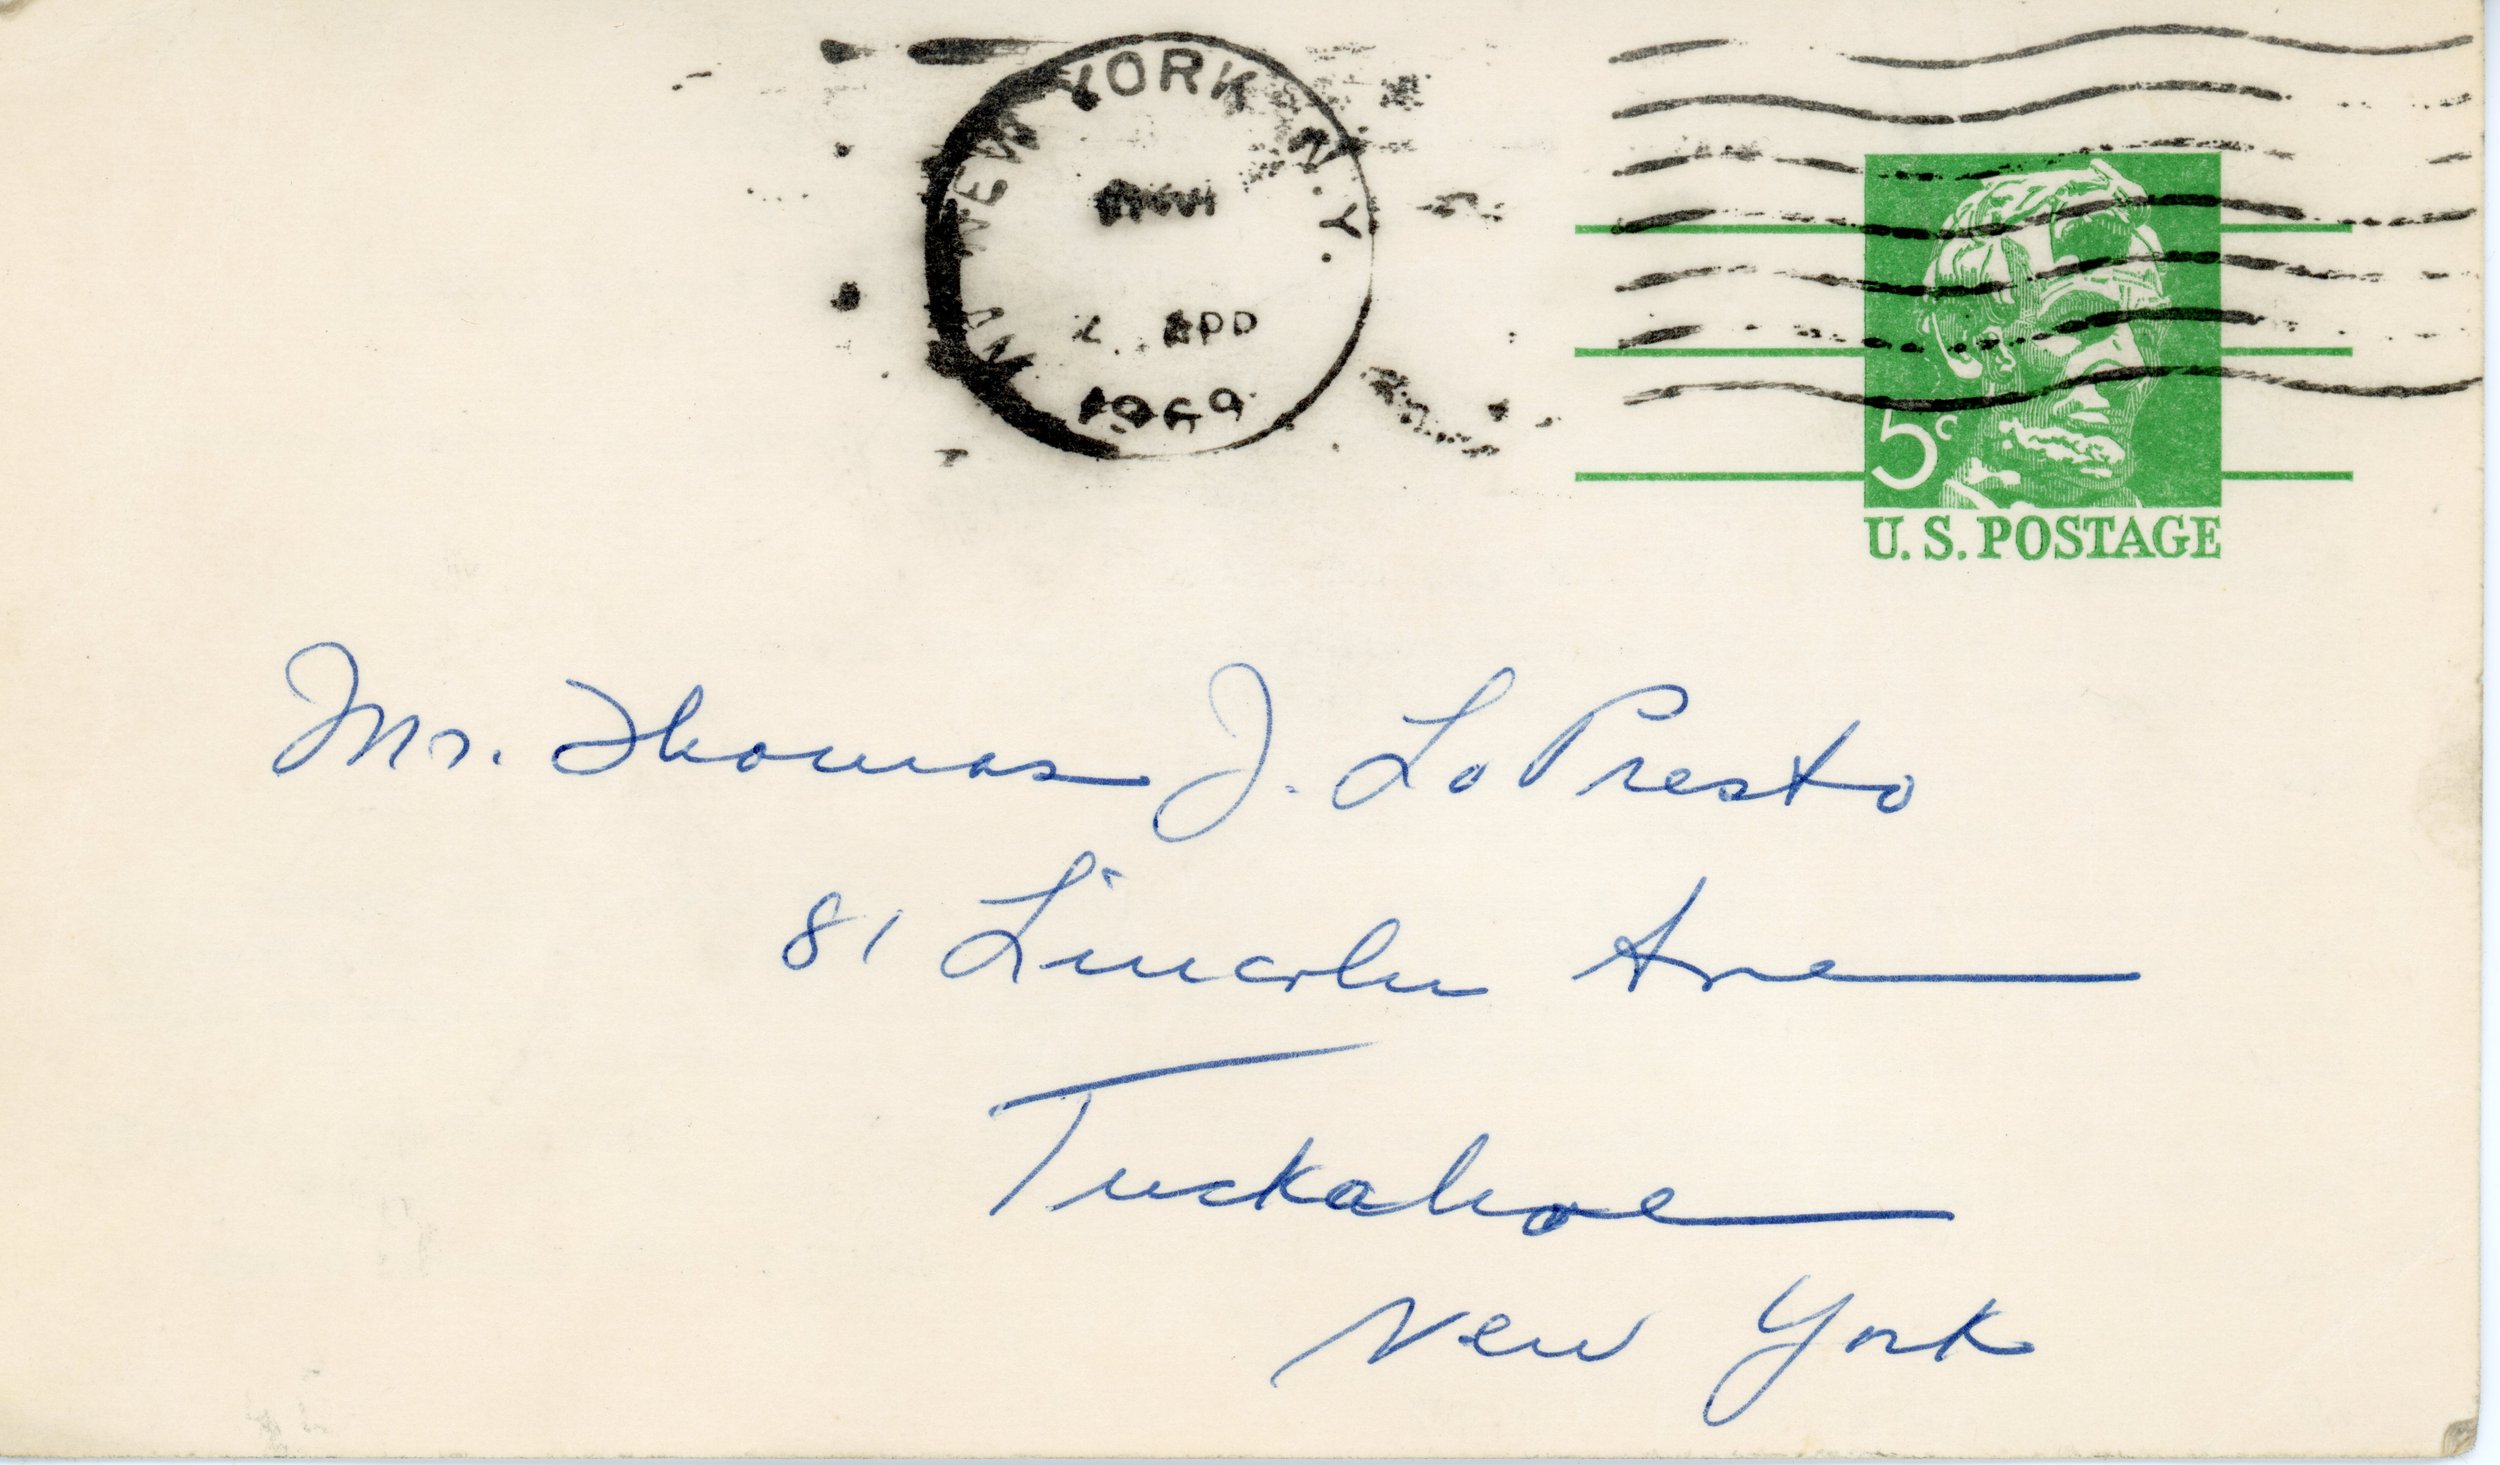 NEW YORK N.Y.
1969
5c
U.S. POSTAGE
Mr. Thomas J. LoPresto
81 Lincoln Ave
Tuckahoe
New York